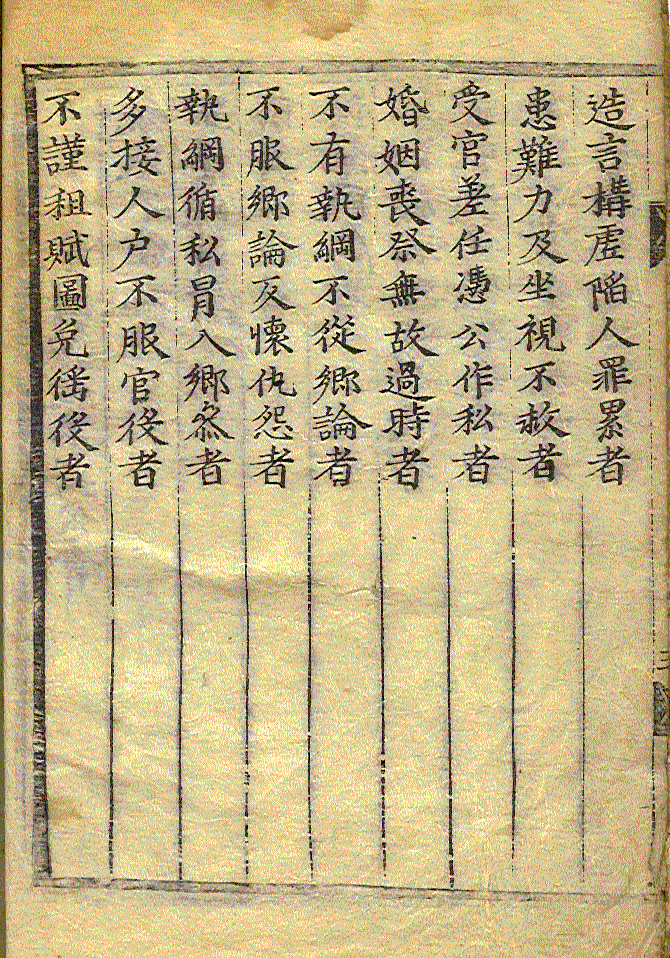 造言構虛陷人罪累者
患難力及坐視不救者
受官差任憑公作私者
婚姻喪祭無故過時者
不有執綱不從鄉論者
不服鄉論反懷仇怨者
執綱循私冒入鄉叅者
多接人户不服官役者
不謹租賦圖免徭役者